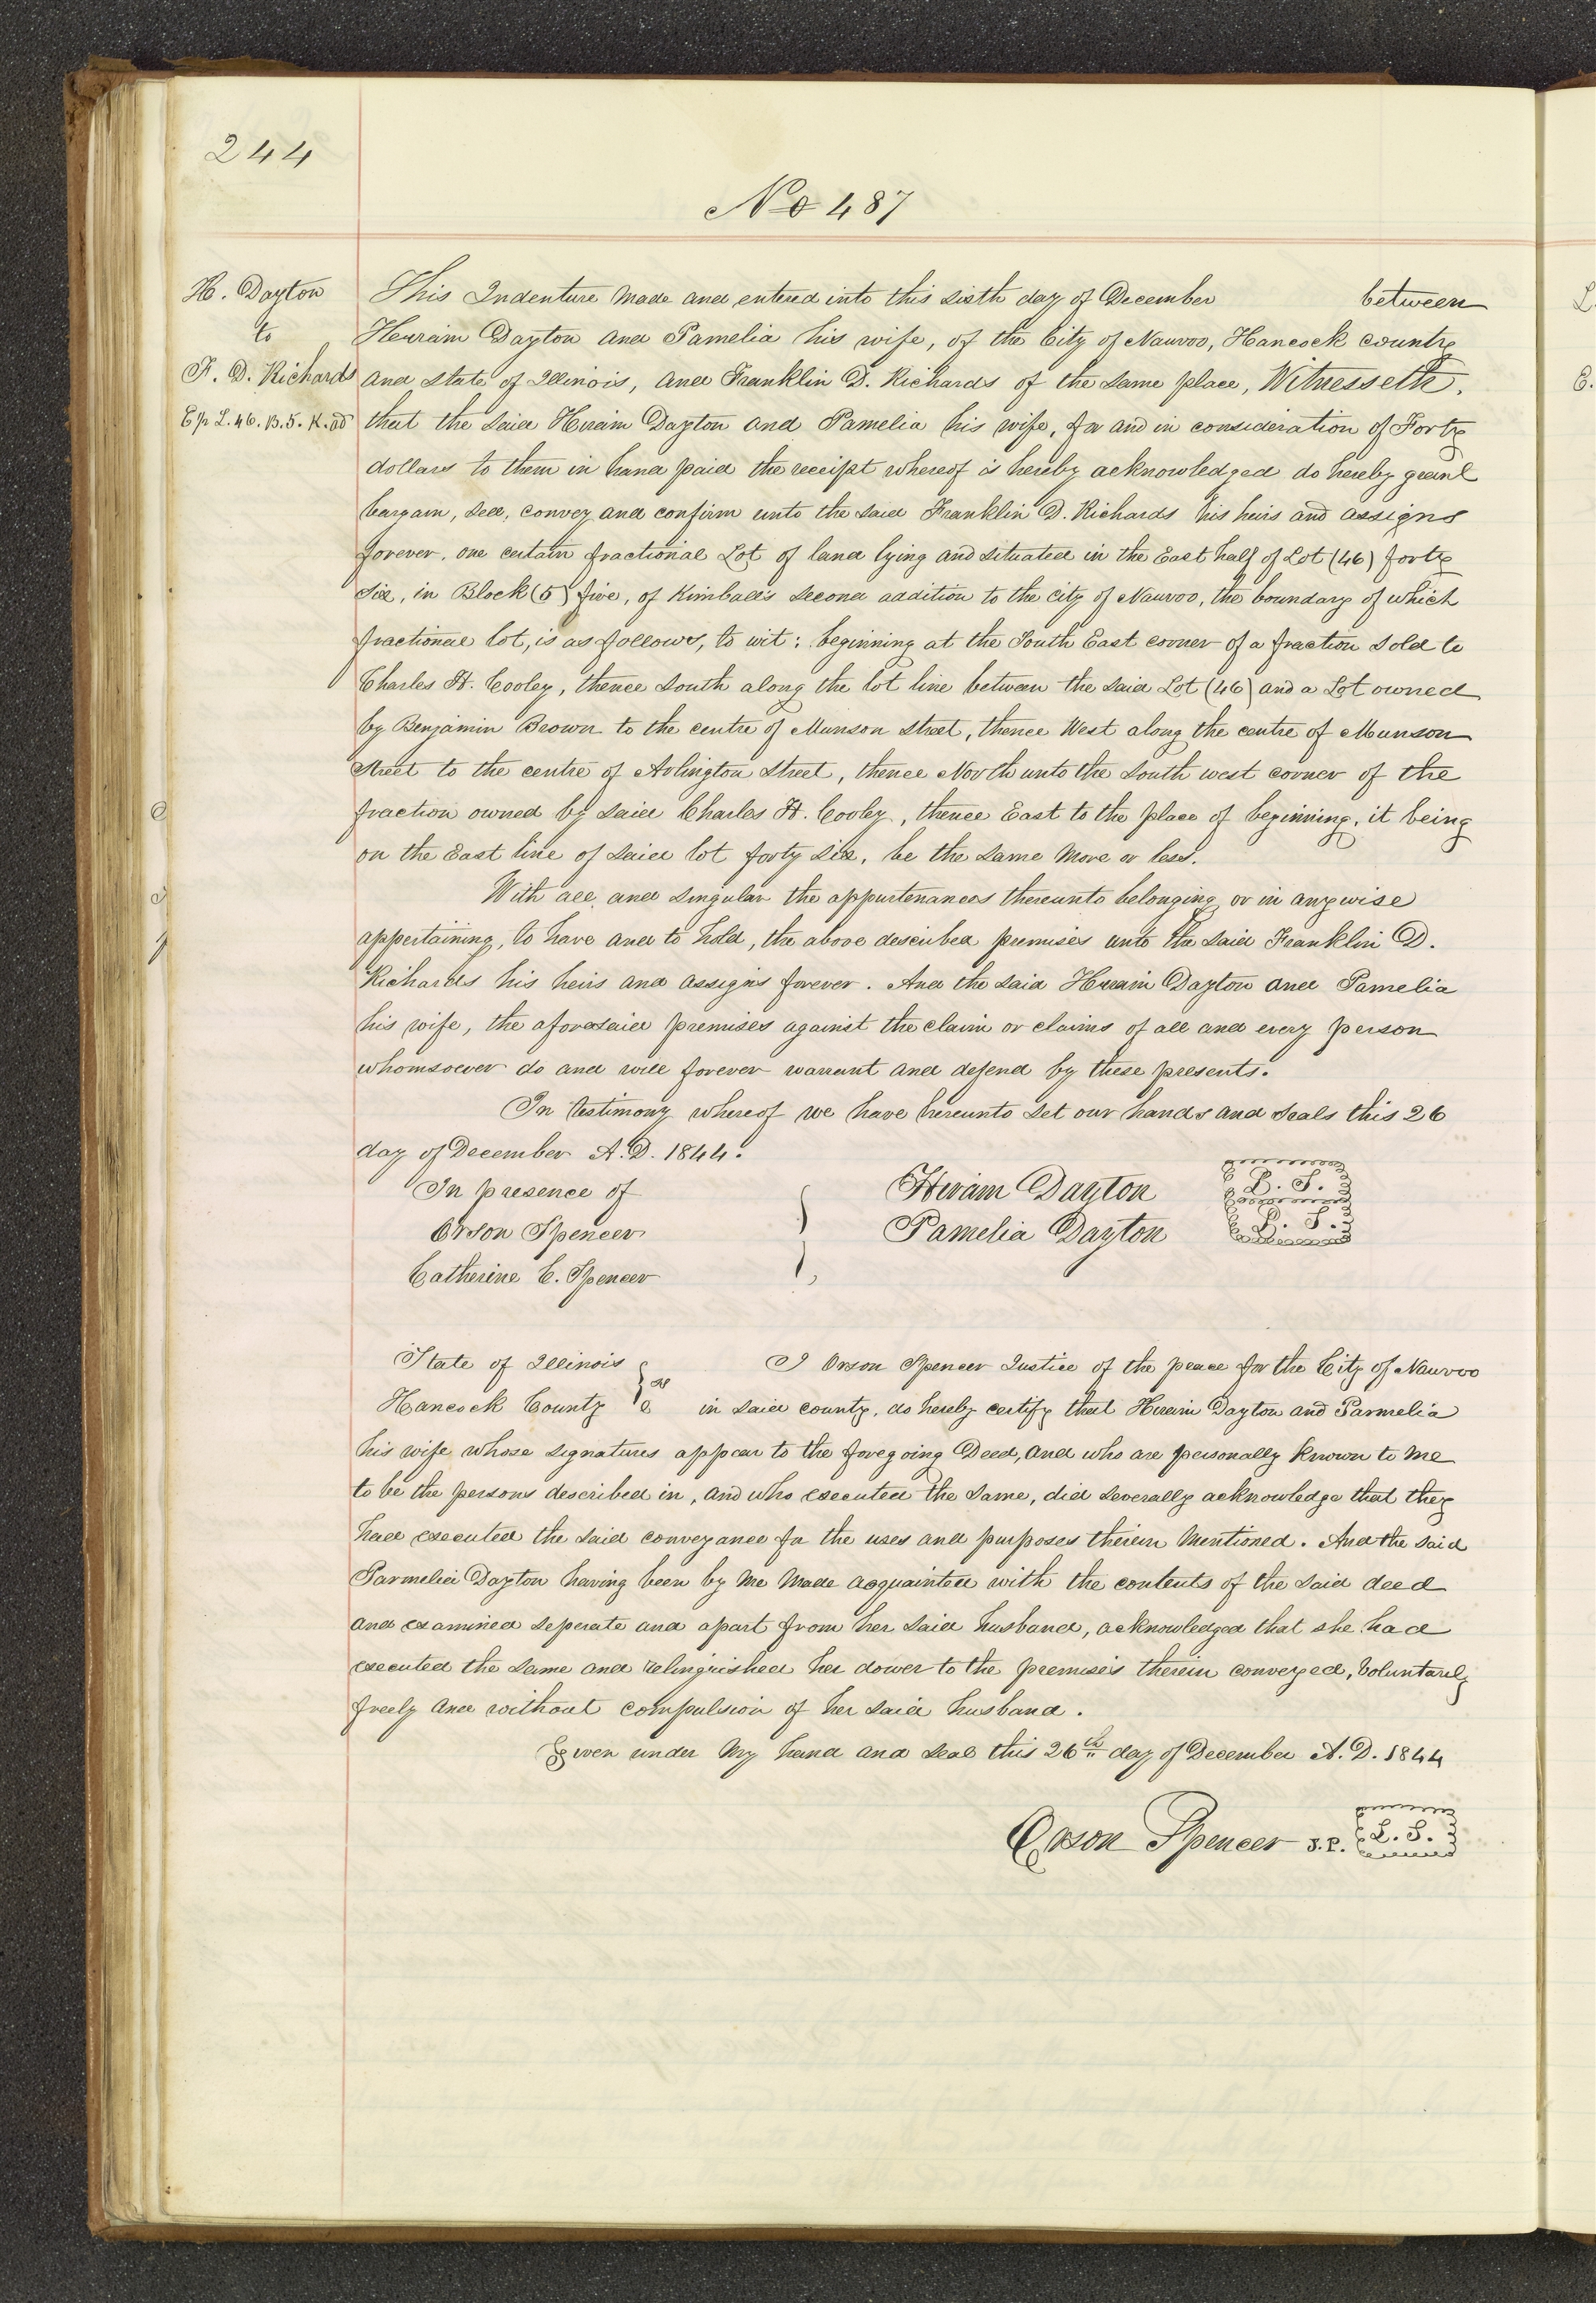 244
No 487
H. Dayton
to
F. D. Richards
E/p L. 46. B. 5. K. ad
This Indenture made and entered into this sixth day of December between
Hiram Dayton and Pamelia his wife, of the City of Nauvoo, Hancock county
and state of Illinois, and Franklin D. Richards of the same place, Witnesseth,
that the said Hiram Dayton and Pamelia his wife, for and in consideration of Forty
dollars to them in hand paid the receipt whereof is hereby acknowledged do hereby grant
bargain, sell, convey and confirm unto the said Franklin D. Richards his heirs and assigns
forever, one certain fractional Lot of land lying and situated in the East half of Lot (46) forty
six, in Block (5) five, of Kimball's second addition to the city of Nauvoo, the boundary of which
fractional lot, is as follows, to wit: beginning at the South East corner of a fraction sold to
Charles H. Cooley, thence south along the lot line between the said Lot (46) and a Lot owned
by Benjamin Brown to the centre of Munson street, thence West along the centre of Munson
Street to the centre of Arlington street, thence North unto the south west corner of the
fraction owned by said Charles H. Cooley, thence East to the place of beginning, it being
on the East line of said lot forty six, be the same more or less.
With all and singular the appurtenances thereunto belonging or in anywise
appertaining, to have and to hold, the above described premises unto the said Franklin D.
Richards his heirs and assigns forever. And the said Hiram Dayton and Pamelia
his wife, the aforesaid premises against the claim or claims of all and every person
whomsoever do and will forever warrant and defend by these presents.
In testimony whereof we have hereunto set our hands and seals this 26
day of December A.D. 1844.
In presence of
Orson Spencer
Catherine C. Spencer
Hiram Dayton L. S.
Pamelia Dayton L. S.
State of Illinois
Hancock County ss
I Orson Spencer Justice of the peace for the City of Nauvoo
in said county, do hereby certify that Hiram Dayton and Parmelia
his wife whose signatures appear to the foregoing Deed, and who are personally known to me
to be the persons described in, and who executed the same, did severally acknowledge that they
had executed the said conveyance for the uses and purposes therein mentioned. And the said
Parmelia Dayton having been by me made acquainted with the contents of the said deed
and examined seperate and apart from her said husband, acknowledged that she had
executed the same and relinquished her dower to the premises therein conveyed, voluntarily
freely and without compulsion of her said husband.
Given under my hand and seal this 26th day of December A.D. 1844
Orson Spencer J.P. L. S.